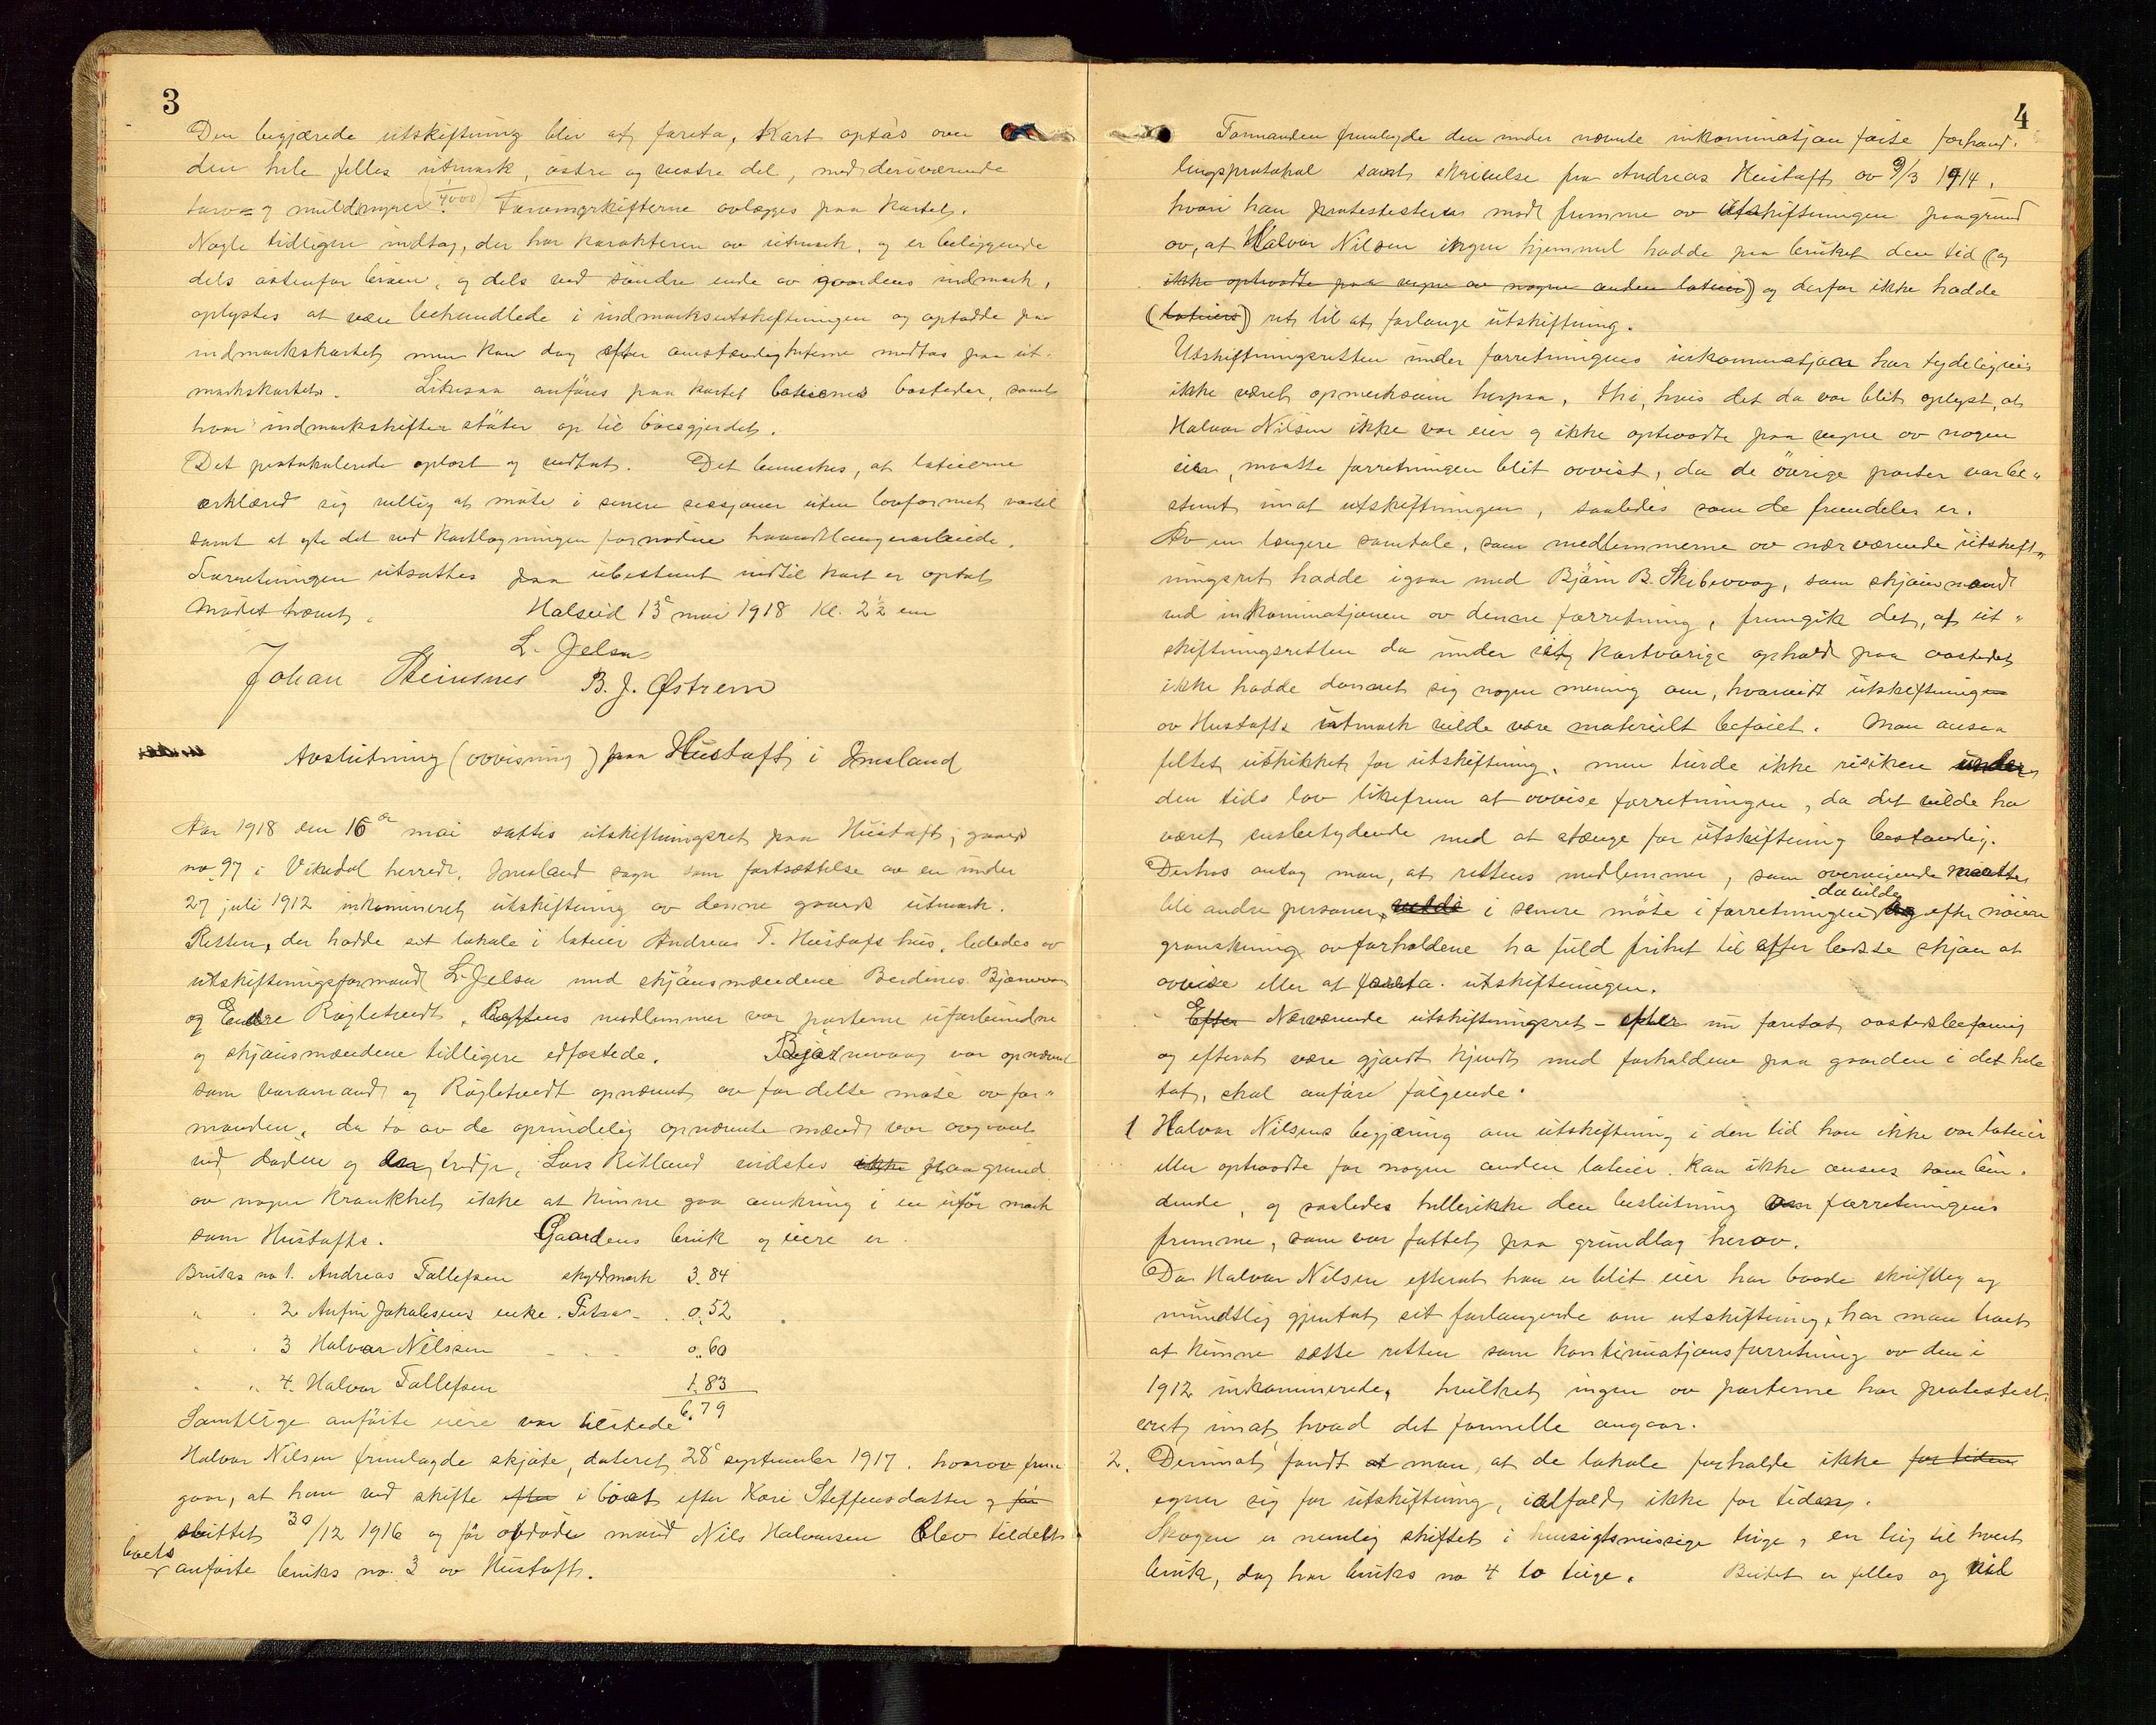 3
Den begjærede utskiftning blir at foreta. Kart optas over
den hele felles utmark, østre og vestre del, med deriværende
torv- og muldmyrer. (1/4000) Torvmyrskifterne avlægges paa kartet.
Nogle tidligere indtag, der har karakteren av utmark, og er beliggende
dels østenfor braaen, og dels ved søndre ende av gaardens indmark,
oplystes at være behandlede i indmarksutskiftningen og optadde paa
indmarkskartet men kan dog efter omstændigheterne medtas paa ut-
markskartet. Likesaa anføres paa kartet lodeiernes bosteder, samt
hvor indmarkskifter støter op til bøesgjerdet.
Det protokolerede oplæst og vedtat. Det bemerkes, at lodeierne
erklæred sig villig at møte i senere sessjoner uten lovformet varsel
samt at yte det ved kartlægningen fornødne haandtlangerarbeide.
Forretningen utsattes paa ubestemt indtil kart er optat
Mødet hævet. Halseid 13de mai 1918 Kl. 2½ em
L. Jelsa
Johan Steinsnes B. J. Østrem
Avslutning (avvisning) paa Hustaft i Imsland
Aar 1918 den 16de mai sattes utskiftningsret paa Hustaft, gaard
no. 97 i Vikedal herred, Imsland sogn som fortsættelse av en under
27 juli 1912 inkamineret utskiftning av denne gaards utmark.
Retten, der hadde sit lokale i lodeier Andreas T. Hustafts hus, lededes av
utskiftningsformand L. Jelsa med skjønsmændene Berdines Bjørnevaag
og Endre Røgletvedt. Rettens medlemmer var parterne uforbundne
og skjønsmændene tidligere edfæstede. Bjørnevaag var opnævnt
som varamand og Røgletvedt opnævnt av for dette møte av for-
manden, da to av de oprindelig opnævnte mænd var avgaaet
ved døden og den tredje, Lars Ritland vidstes ikke paagrund
av nogen krankhet ikke at kunne gaa omkring i en ufør mark
som Hustafts. Gaardens bruk og eiere er
Bruks no 1. Andreas Tollefsen skyldmark 3.84
" " 2 Anfin Jakobsens enke Petra - . 0.52
" " 3 Halvor Nilssen - - - 0.60
" " 4. Halvor Tollefsen 1.83
6.79
Samtlige anførte eiere var tilstede
Halvor Nilsen fremlagde skjøte, dateret 28de september 1917, hvorav frem-
gaar, at han ved skifte efter i boet efter Kari Steffensdatter og før
sluttet 30/12 1916 og før avdøde mand Nils Halvorsen blev tildelt
boets anførte bruks no. 3 av Hustaft.
4
Formanden fremlagde den under nævnte inkaminatjon førte forhand-
lingsprotokol samt skrivelse fra Andreas Hustaft av 9/3 1914,
hvori han protesterer mod fremme av utskiftningen paagrund
av, at Halvor Nilsen ingen hjemmel hadde paa bruket den tid (og
ikke optraadte paa vegne av nogen anden lodeier) og derfor ikke hadde
(lodeiers) ret til at forlange utskiftning.
Utskiftningsretten under forretningens inkaminatjon har tydeligvis
ikke været opmerksom herpaa, thi, hvis det da var blit oplyst, at
Halvor Nilsen ikke var eier og ikke optraadte paa vegne av nogen
eier, maatte forretningen blit avvist, da de øvrige parter var be-
stemt imot utskiftningen, saaledes som de fremdeles er.
Av en længere samtale, som medlemmerne av nærværende utskift-
ningsret hadde igaar med Bjørn B. Skibevaag, som skjønsmand
ved inkaminatjonen av denne forretning, fremgik det, at ut-
skiftningsretten da under sit kortvarige ophold paa aastedet
ikke hadde dannet sig nogen mening om, hvorvidt utskiftningen
av Hustafts utmark vilde være materielt beføiet. Man ansaa
feltet uskikket for utskiftning, men turde ikke risikere under
den tids lov likefrem at avvise forretningen, da det vilde ha
været ensbetydende med at stænge for utskiftning bestandig.
Derhos antog man, at rettens medlemmer, som overveiende maatte
bli andre personer, vilde i senere møte i forretningen da vilde og efter nøiere
granskning av forholdene ha fuld frihet til efter bedste skjøn at
avvise eller at foreta utskiftningen.
Efter Nærværende utskiftningsret - efter nu foretat aastedsbefaring
og efterat være gjordt kjendt med forholdene paa gaarden i det hele
tat, skal anføre følgende:
1 Halvor Nilsens begjæring om utskiftning i den tid han ikke var lodeier
eller optraadte for nogen anden lodeier kan ikke ansees som bin-
dende, og saaledes hellerikke den beslutning om forretningens
fremme, som var fattet paa grundlag herav.
Da Halvor Nilsen efterat han er blit eier har baade skriftlig og
mundtlig gjentat sit forlangende om utskiftning, har man troet
at kunne sætte retten som kontinuatjonsforretning av den i
1912 inkaminerede, hvilket ingen av parterne har protest-
eret imot, hvad det formelle angaar.
2. Derimot fandt at man, at de lokale forholde ikke for tiden
egner sig for utskiftning, ialfald ikke for tiden.
Skogen er nemlig skiftet i hensigtsmessige teige, en teig til hvert
bruk, dog har bruks no 4 to teige. Beitet er felles og vil